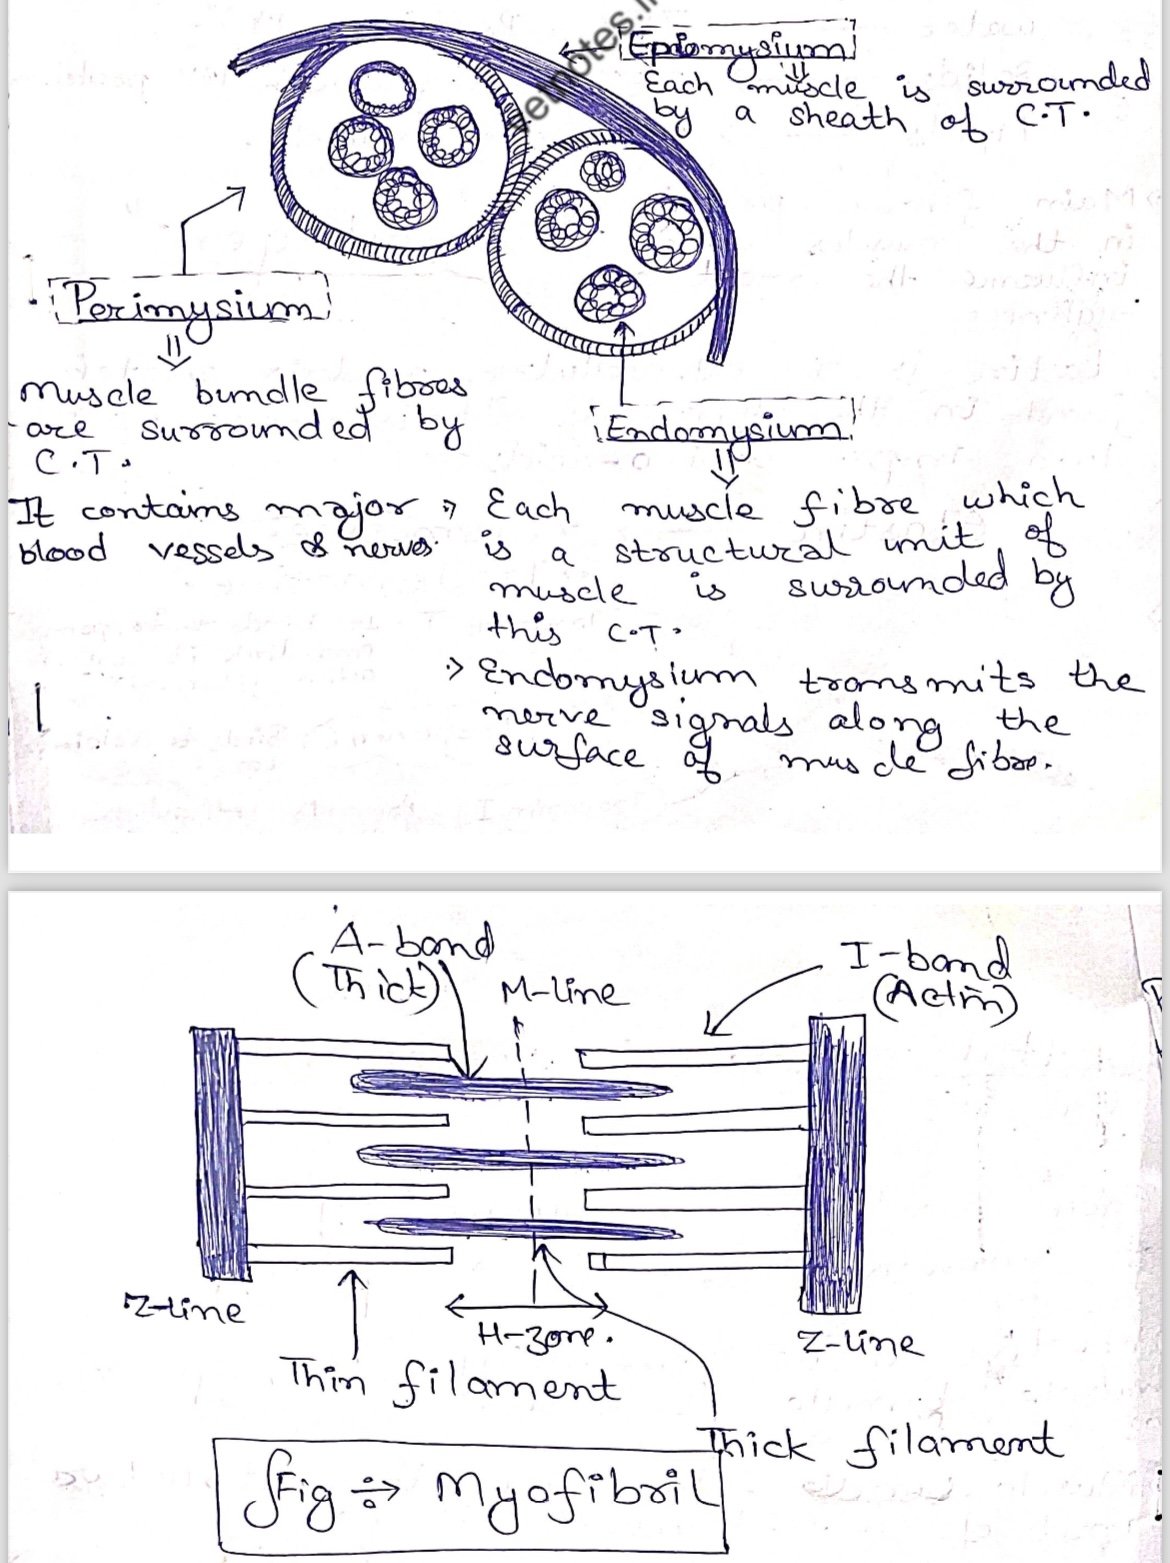 etnotes.i
Epiomysium
Each muscle is surrounded
by a sheath of C.T.
Perimysium
Muscle bundle fibres
are surrounded by
C.T.
It contains major
blood vessels & nerves.
Endomysium
Each muscle fibre which
is a structural unit of
muscle is surrounded by
this C.T.
Endomysium transmits the
nerve signals along the
surface of muscle fibre.
A-band
(Thick)
M-line
I-band
(Actin)
Z-line
H-zone.
Z-line
Thin filament
Thick filament
Fig ÷> Myofibril